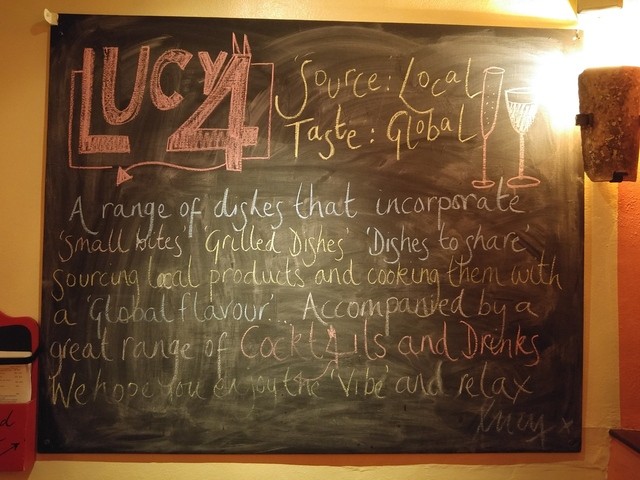 LUCY4
'Source: Local
Taste: Global
A range of dishes that incorporate
'small bites' 'Grilled Dishes' 'Dishes to share'
sourcing local products and cooking them with
a 'Global flavour'... Accompanied by a
great range of Cocktails and Drinks
We hope you enjoy the 'Vibe' and relax
Lucy x